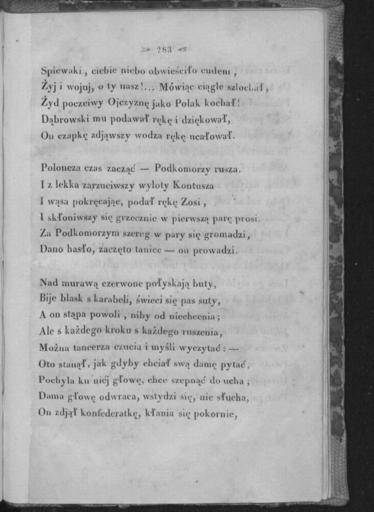 283
Spiewaki, ciebie niebo obwieściło cudem,
Żyj i wojuj, o ty nasz!... Mówiąc ciągle szlochał,
Żyd poczciwy Ojczyznę jako Polak kochał!
Dąbrowski mu podawał rękę i dziękował,
On czapkę zdjąwszy wodza rękę ucałował.
Poloneza czas zacząć — Podkomorzy rusza.
I z lekka zarzuciwszy wyloty Kontusza
I wąsa pokręcając, podał rękę Zosi,
I skłoniwszy się grzecznie w pierwszą parę prosi.
Za Podkomorzym szereg w pary się gromadzi,
Dano hasło, zaczęto taniec — on prowadzi.
Nad murawą czerwone połyskają buty,
Bije blask s karabeli, świeci się pas suty,
A on stąpa powoli, niby od niechcenia;
Ale s każdego kroku s każdego ruszenia,
Można tancerza czucia i myśli wyczytać: —
Oto stanął, jak gdyby chciał swą damę pytać,
Pochyla ku niéj głowę, chce szepnąć do ucha;
Dama głowę odwraca, wstydzi się, nie słucha,
On zdjął konfederatkę, kłania się pokornie,